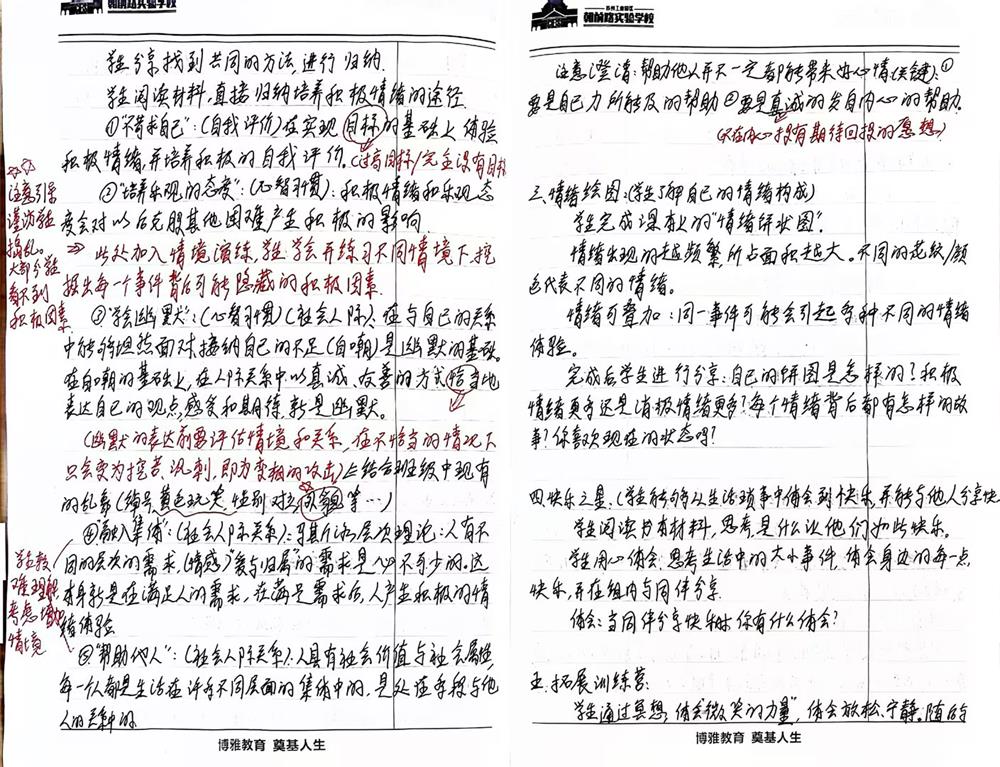 翰林路实验学校
学生分享找到共同的方法,进行归纳.
学生阅读材料,直接归纳培养积极情绪的途径.
①"不苛求自己":(自我评价)在实现目标的基础上体验
积极情绪,并培养积极的自我评价.(过高目标/完全没有目标
②"培养乐观的态度":(心智习惯):积极情绪和乐观态
度会对以后克服其他困难产生积极的影响.
⇒ 此处加入情境演练,学生学会并练习不同情境下,挖
掘出每一个事件背后可能隐藏的积极因素.
注意引导
捣乱.
大部分学生
看不到
积极因素.
③"学会幽默":(心智习惯)(社会人际).在与自己的关系
中能够坦然面对、接纳自己的不足(自嘲)是幽默的基础.
在自嘲的基础上,在人际关系中以真诚、友善的方式恰当地
表达自己的观点,感受和期待,就是幽默.
(幽默的表达前要评估情境和关系,在不恰当的情况下
只会变为挖苦、讽刺,即为变相的攻击)
的乱象(绰号、黄色玩笑、性别对立、等…)
④"融入集体":(社会人际关系):马斯洛的层次理论:人有不
同的层次的需求.(情感)"爱与归属"的需求是必不可少的.这
本身就是在满足人的需求,在满足需求后,人产生积极的情
绪体验
学生较
难理解,
考虑增加
情境
⑤"帮助他人":(社会人际关系):人具有社会价值与社会属性,
每一个人都是生活在许多不同层面的集体中的,是处在手段与他
人的关系中的.
博雅教育 奠基人生
苏州工业园区
翰林路实验学校
注意澄清:帮助他人并不一定都能带来好心情(关键):①
要是自己力所能及的帮助②要是真诚的发自内心的帮助.
(不在内心没有期待回报的愿想)
三.情绪绘图:(学生了解自己的情绪构成)
学生完成课本上的"情绪饼状图".
情绪出现的越频繁,所占面积越大.不同的花纹/颜
色代表不同的情绪.
情绪可叠加:同一事件可能会引起多种不同的情绪
体验.
完成后学生进行分享:自己的饼图是怎样的?积极
情绪更多还是消极情绪更多?每个情绪背后都有怎样的故
事?你喜欢现在的状态吗?
四.快乐之星.(学生能够从生活琐事中体会到快乐,并能与他人分享快
学生阅读书本材料,思考是什么让他们如此快乐.
学生用心体会,思考生活中的大小事件,体会身边的每一点
快乐,并在组内与同伴分享.
体会:当同伴分享快乐时你有什么体会?
五.拓展训练营:
学生通过冥想,体会"微笑的力量",体会放松、宁静.随后与
博雅教育 奠基人生